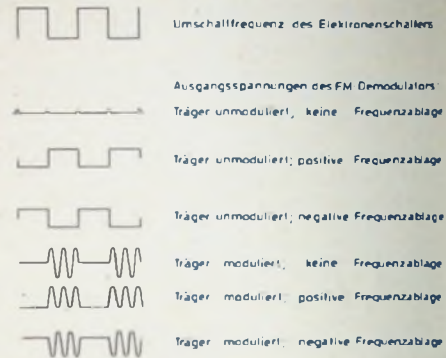 Umschaltfrequenz des Elektronenschalters
Ausgangsspannungen des FM-Demodulators:
Träger unmoduliert; keine Frequenzablage
Träger unmoduliert; positive Frequenzablage
Träger unmoduliert; negative Frequenzablage
Träger moduliert; keine Frequenzablage
Träger moduliert; positive Frequenzablage
Träger moduliert; negative Frequenzablage